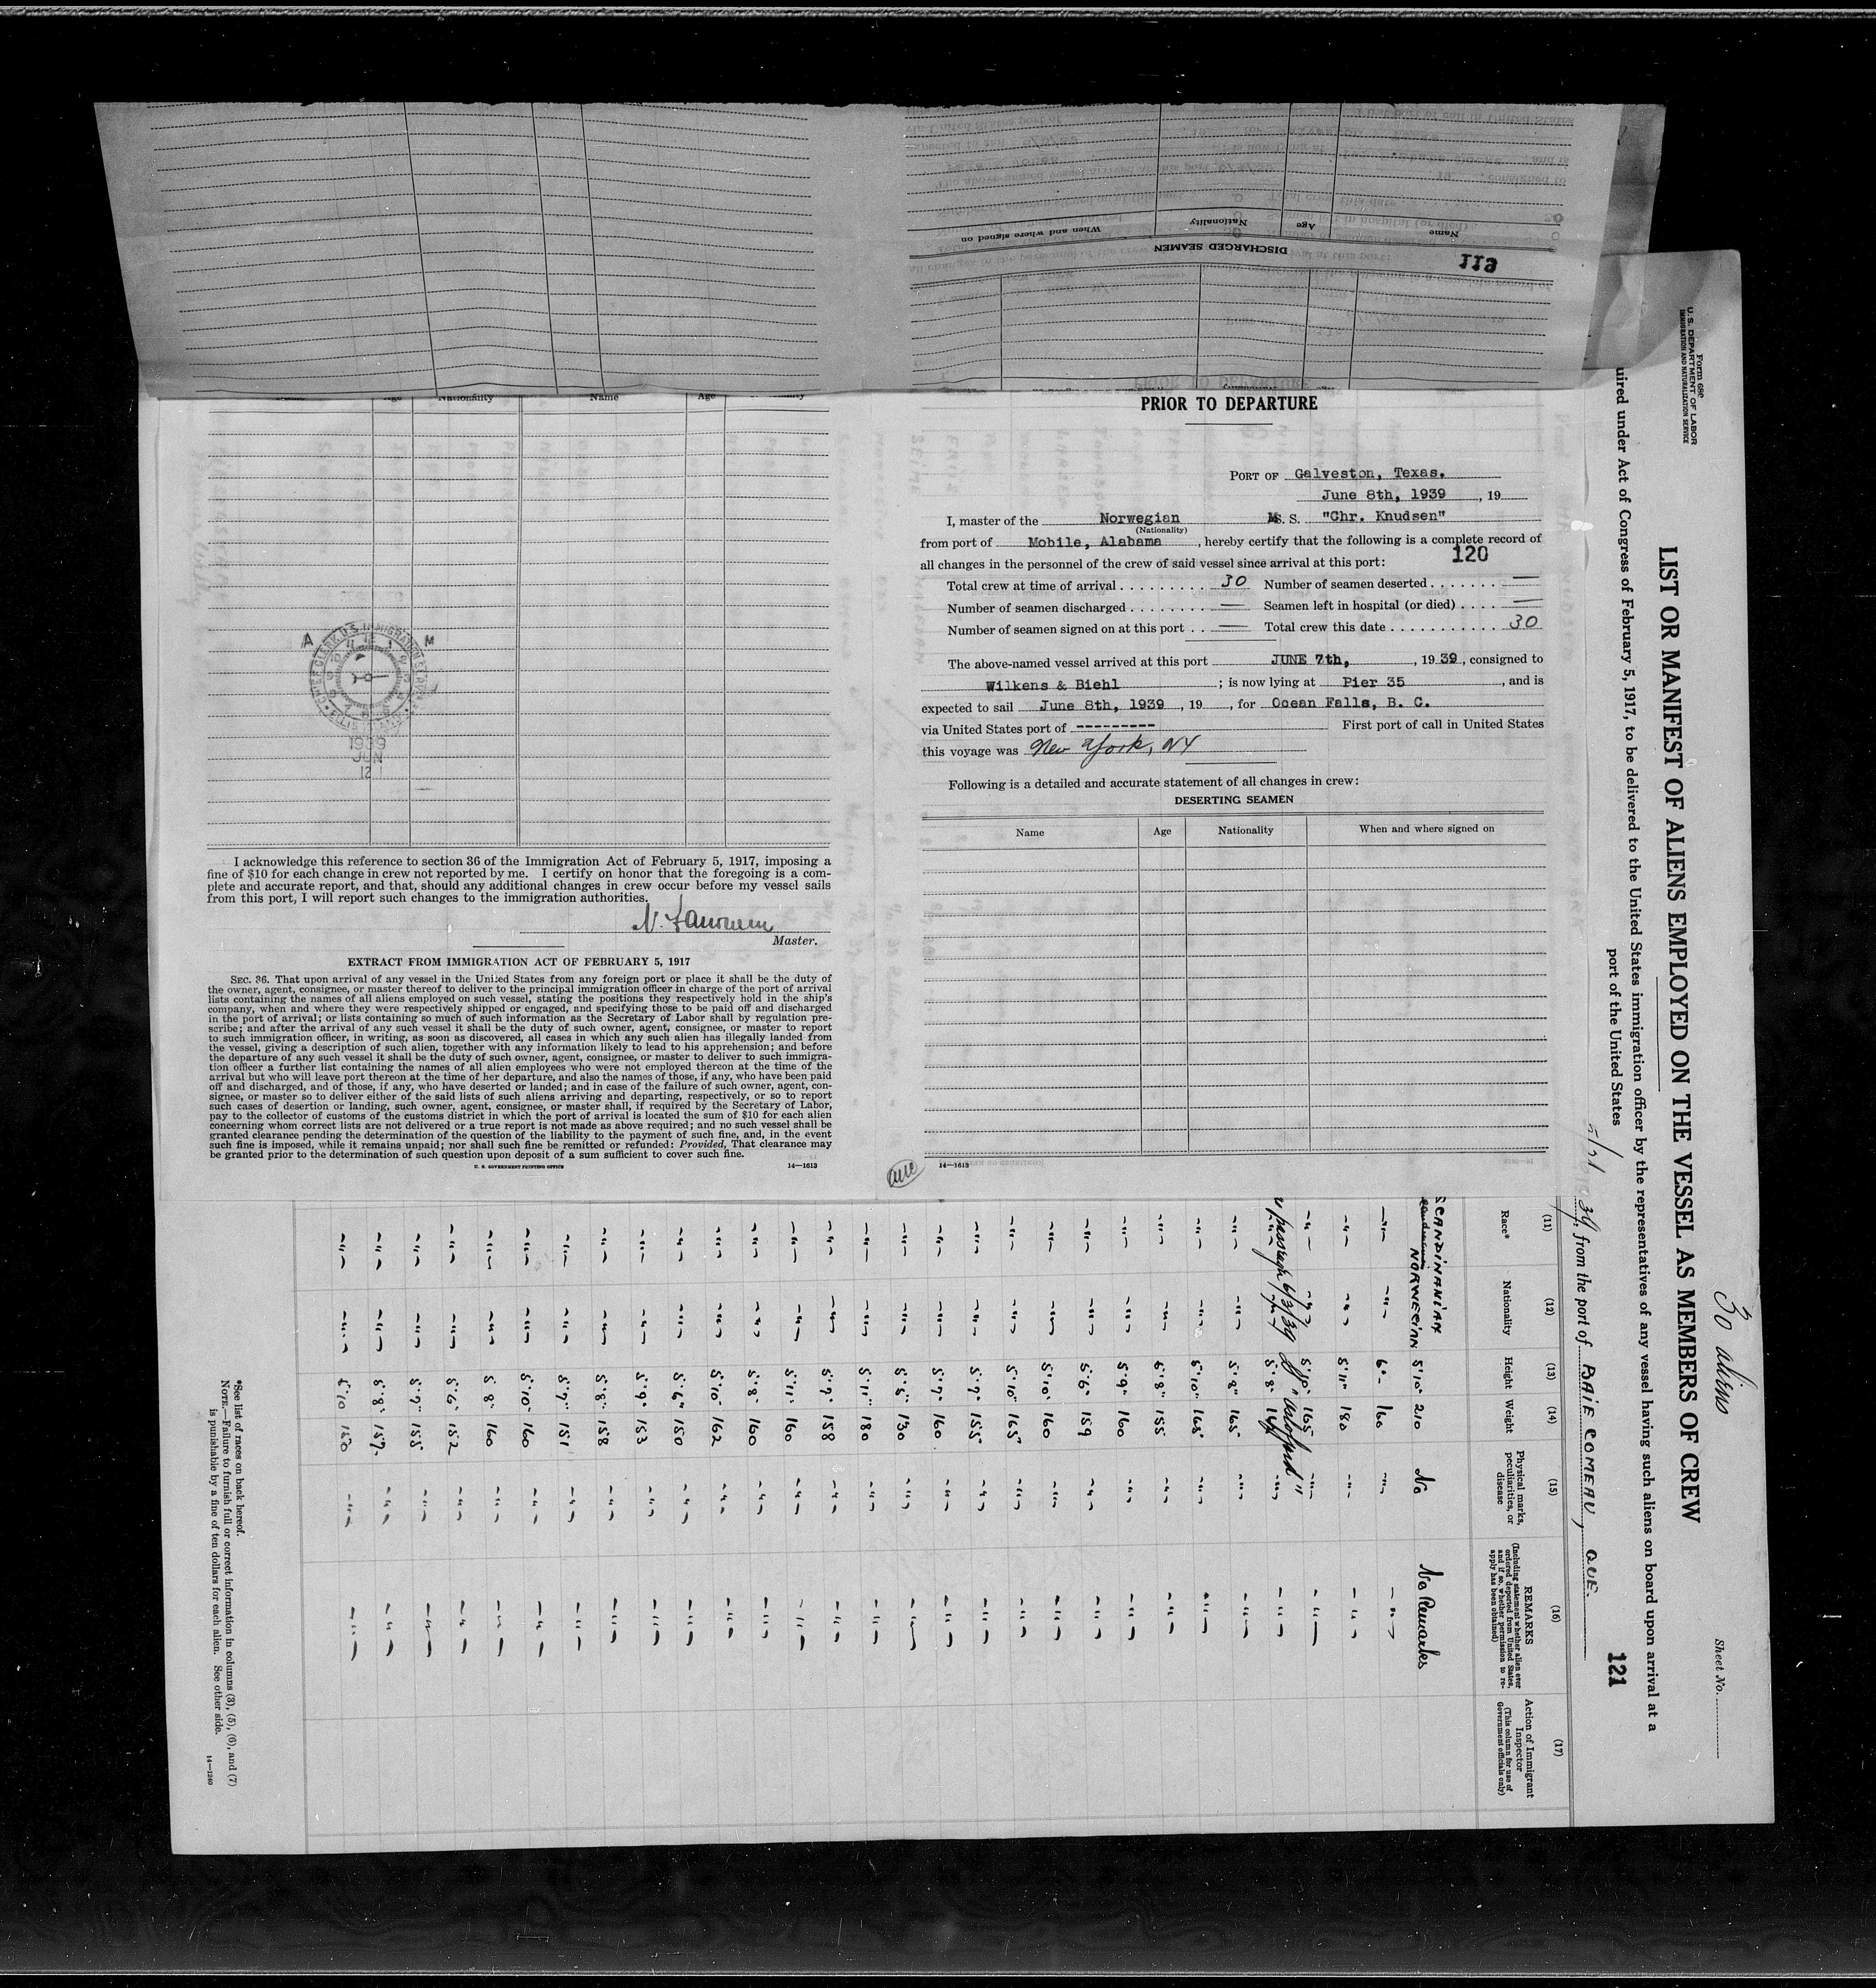 DISCHARGED SEAMEN
Name Age Nationality When and where signed on
119
Age Nationality Name Age
A M
1939
JUN
12
I acknowledge this reference to section 36 of the Immigration Act of February 5, 1917, imposing a
fine of $10 for each change in crew not reported by me. I certify on honor that the foregoing is a com-
plete and accurate report, and that, should any additional changes in crew occur before my vessel sails
from this port, I will report such changes to the immigration authorities.
Master.
EXTRACT FROM IMMIGRATION ACT OF FEBRUARY 5, 1917
SEC. 36. That upon arrival of any vessel in the United States from any foreign port or place it shall be the duty of
the owner, agent, consignee, or master thereof to deliver to the principal immigration officer in charge of the port of arrival
lists containing the names of all aliens employed on such vessel, stating the positions they respectively hold in the ship's
company, when and where they were respectively shipped or engaged, and specifying those to be paid off and discharged
in the port of arrival; or lists containing so much of such information as the Secretary of Labor shall by regulation pre-
scribe; and after the arrival of any such vessel it shall be the duty of such owner, agent, consignee, or master to report
to such immigration officer, in writing, as soon as discovered, all cases in which any such alien has illegally landed from
the vessel, giving a description of such alien, together with any information likely to lead to his apprehension; and before
the departure of any such vessel it shall be the duty of such owner, agent, consignee, or master to deliver to such immigra-
tion officer a further list containing the names of all alien employees who were not employed thereon at the time of the
arrival but who will leave port thereon at the time of her departure, and also the names of those, if any, who have been paid
off and discharged, and of those, if any, who have deserted or landed; and in case of the failure of such owner, agent, con-
signee, or master so to deliver either of the said lists of such aliens arriving and departing, respectively, or so to report
such cases of desertion or landing, such owner, agent, consignee, or master shall, if required by the Secretary of Labor,
pay to the collector of customs of the customs district in which the port of arrival is located the sum of $10 for each alien
concerning whom correct lists are not delivered or a true report is not made as above required; and no such vessel shall be
granted clearance pending the determination of the question of the liability to the payment of such fine, and, in the event
such fine is imposed, while it remains unpaid; nor shall such fine be remitted or refunded: Provided, That clearance may
be granted prior to the determination of such question upon deposit of a sum sufficient to cover such fine.
U. S. GOVERNMENT PRINTING OFFICE 14—1613
PRIOR TO DEPARTURE
PORT OF Galveston, Texas.
June 8th, 1939 , 19
I, master of the Norwegian M S. S. "Chr. Knudsen"
(Nationality)
from port of Mobile, Alabama , hereby certify that the following is a complete record of
120
all changes in the personnel of the crew of said vessel since arrival at this port:
Total crew at time of arrival . . . . . . . . . 30 Number of seamen deserted . . . . . . . —
Number of seamen discharged . . . . . . . . — Seamen left in hospital (or died) . . . . —
Number of seamen signed on at this port . . — Total crew this date . . . . . . . . . . . 30
The above-named vessel arrived at this port JUNE 7th, , 1939 , consigned to
Wilkens & Biehl ; is now lying at Pier 35 , and is
expected to sail June 8th, 1939 , 19 , for Ocean Falls, B. C.
via United States port of ---------- First port of call in United States
this voyage was New York, NY
Following is a detailed and accurate statement of all changes in crew:
DESERTING SEAMEN
Name Age Nationality When and where signed on
14—1613
Form 689
U. S. DEPARTMENT OF LABOR
IMMIGRATION AND NATURALIZATION SERVICE
30 aliens
Sheet No.
LIST OR MANIFEST OF ALIENS EMPLOYED ON THE VESSEL AS MEMBERS OF CREW
uired under Act of Congress of February 5, 1917, to be delivered to the United States immigration officer by the representatives of any vessel having such aliens on board upon arrival at a
port of the United States
121
5/31 39, from the port of BAIE COMEAU, QUE.
(11) (12) (13) (14) (15) (16) (17)
Race* Nationality Height Weight Physical marks, peculiarities, or disease REMARKS (Including statement whether alien ever ordered deported from United States, and if so, whether permission to re-apply has been obtained) Action of Immigrant Inspector (This column for use of Government officials only)
SCANDINAVIAN NORWEGIAN 5'10" 210 No No Remarks
-"- -"- 6'- 160 -"- -"-
-"- -"- 5'11" 180 -"- -"-
-"- -"- 5'10" 165 -"- -"-
-"- -"- 5'8" -"- -"-
-"- -"- 5'8" 165 -"- -"-
-"- -"- 5'10" 165 -"- -"-
-"- -"- 5'8" 155 -"- -"-
-"- -"- 5'9" 160 -"- -"-
-"- -"- 5'6" 159 -"- -"-
-"- -"- 5'10" 160 -"- -"-
-"- -"- 5'10" 165 -"- -"-
-"- -"- 5'7" 155 -"- -"-
-"- -"- 5'7" 160 -"- -"-
-"- -"- 5'5" 130 -"- -"-
-"- -"- 5'11" 180 -"- -"-
-"- -"- 5'7" 158 -"- -"-
-"- -"- 5'11" 160 -"- -"-
-"- -"- 5'8" 160 -"- -"-
-"- -"- 5'10" 162 -"- -"-
-"- -"- 5'6" 150 -"- -"-
-"- -"- 5'9" 153 -"- -"-
-"- -"- 5'8" 158 -"- -"-
-"- -"- 5'7" 151 -"- -"-
-"- -"- 5'10" 160 -"- -"-
-"- -"- 5'8" 160 -"- -"-
-"- -"- 5'6" 152 -"- -"-
-"- -"- 5'7" 155 -"- -"-
-"- -"- 5'8" 157 -"- -"-
-"- -"- 5'10 150 -"- -"-
*See list of races on back hereof.
NOTE.—Failure to furnish full or correct information in columns (3), (5), (6), and (7)
is punishable by a fine of ten dollars for each alien. See other side.
14—1240